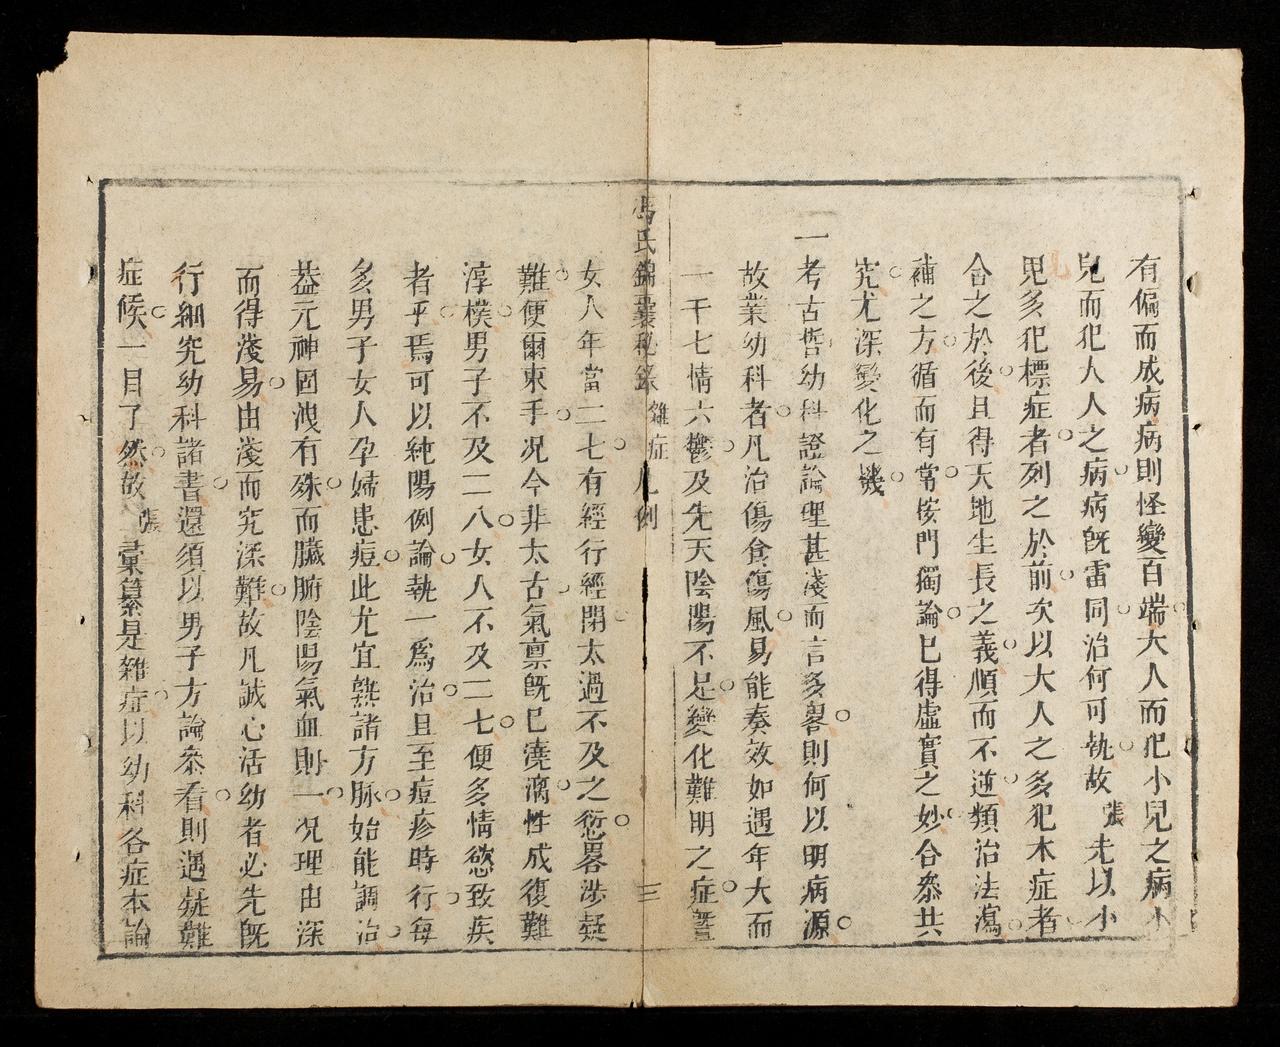 有偏而成病病則怪變百端大人而犯小兒之病小
兒而犯大人之病病旣雷同治何可執故張先以小
兒多犯標症者列之於前次以大人之多犯本症者
合之於後且得天地生長之義順而不逆類治法瀉
補之方循而有常按門獨論已得虛實之妙合叅共
究尤深變化之機
一考古哲幼科證論理甚淺而言多畧則何以明病源
故業幼科者凡治傷食傷風易能奏效如遇年大而
一干七情六鬱及先天陰陽不足變化難明之症曁
馮氏錦囊秘錄 雜症 凡例 三
女人年當二七有經行經閉太過不及之愆畧涉疑
難便爾束手况今非太古氣禀旣已澆漓性成復難
淳樸男子不及二八女人不及二七便多情慾致疾
者乎焉可以純陽例論執一爲治且至痘疹時行每
多男子女人孕婦患痘此尤宜熟諸方脉始能調治
葢元神固洩有殊而臟腑陰陽氣血則一况理由深
而得淺易由淺而究深難故凡誠心活幼者必先旣
行細究幼科諸書還須以男子方論叅看則遇疑難
症候一目了然故張彙纂是雜症以幼科各症本論